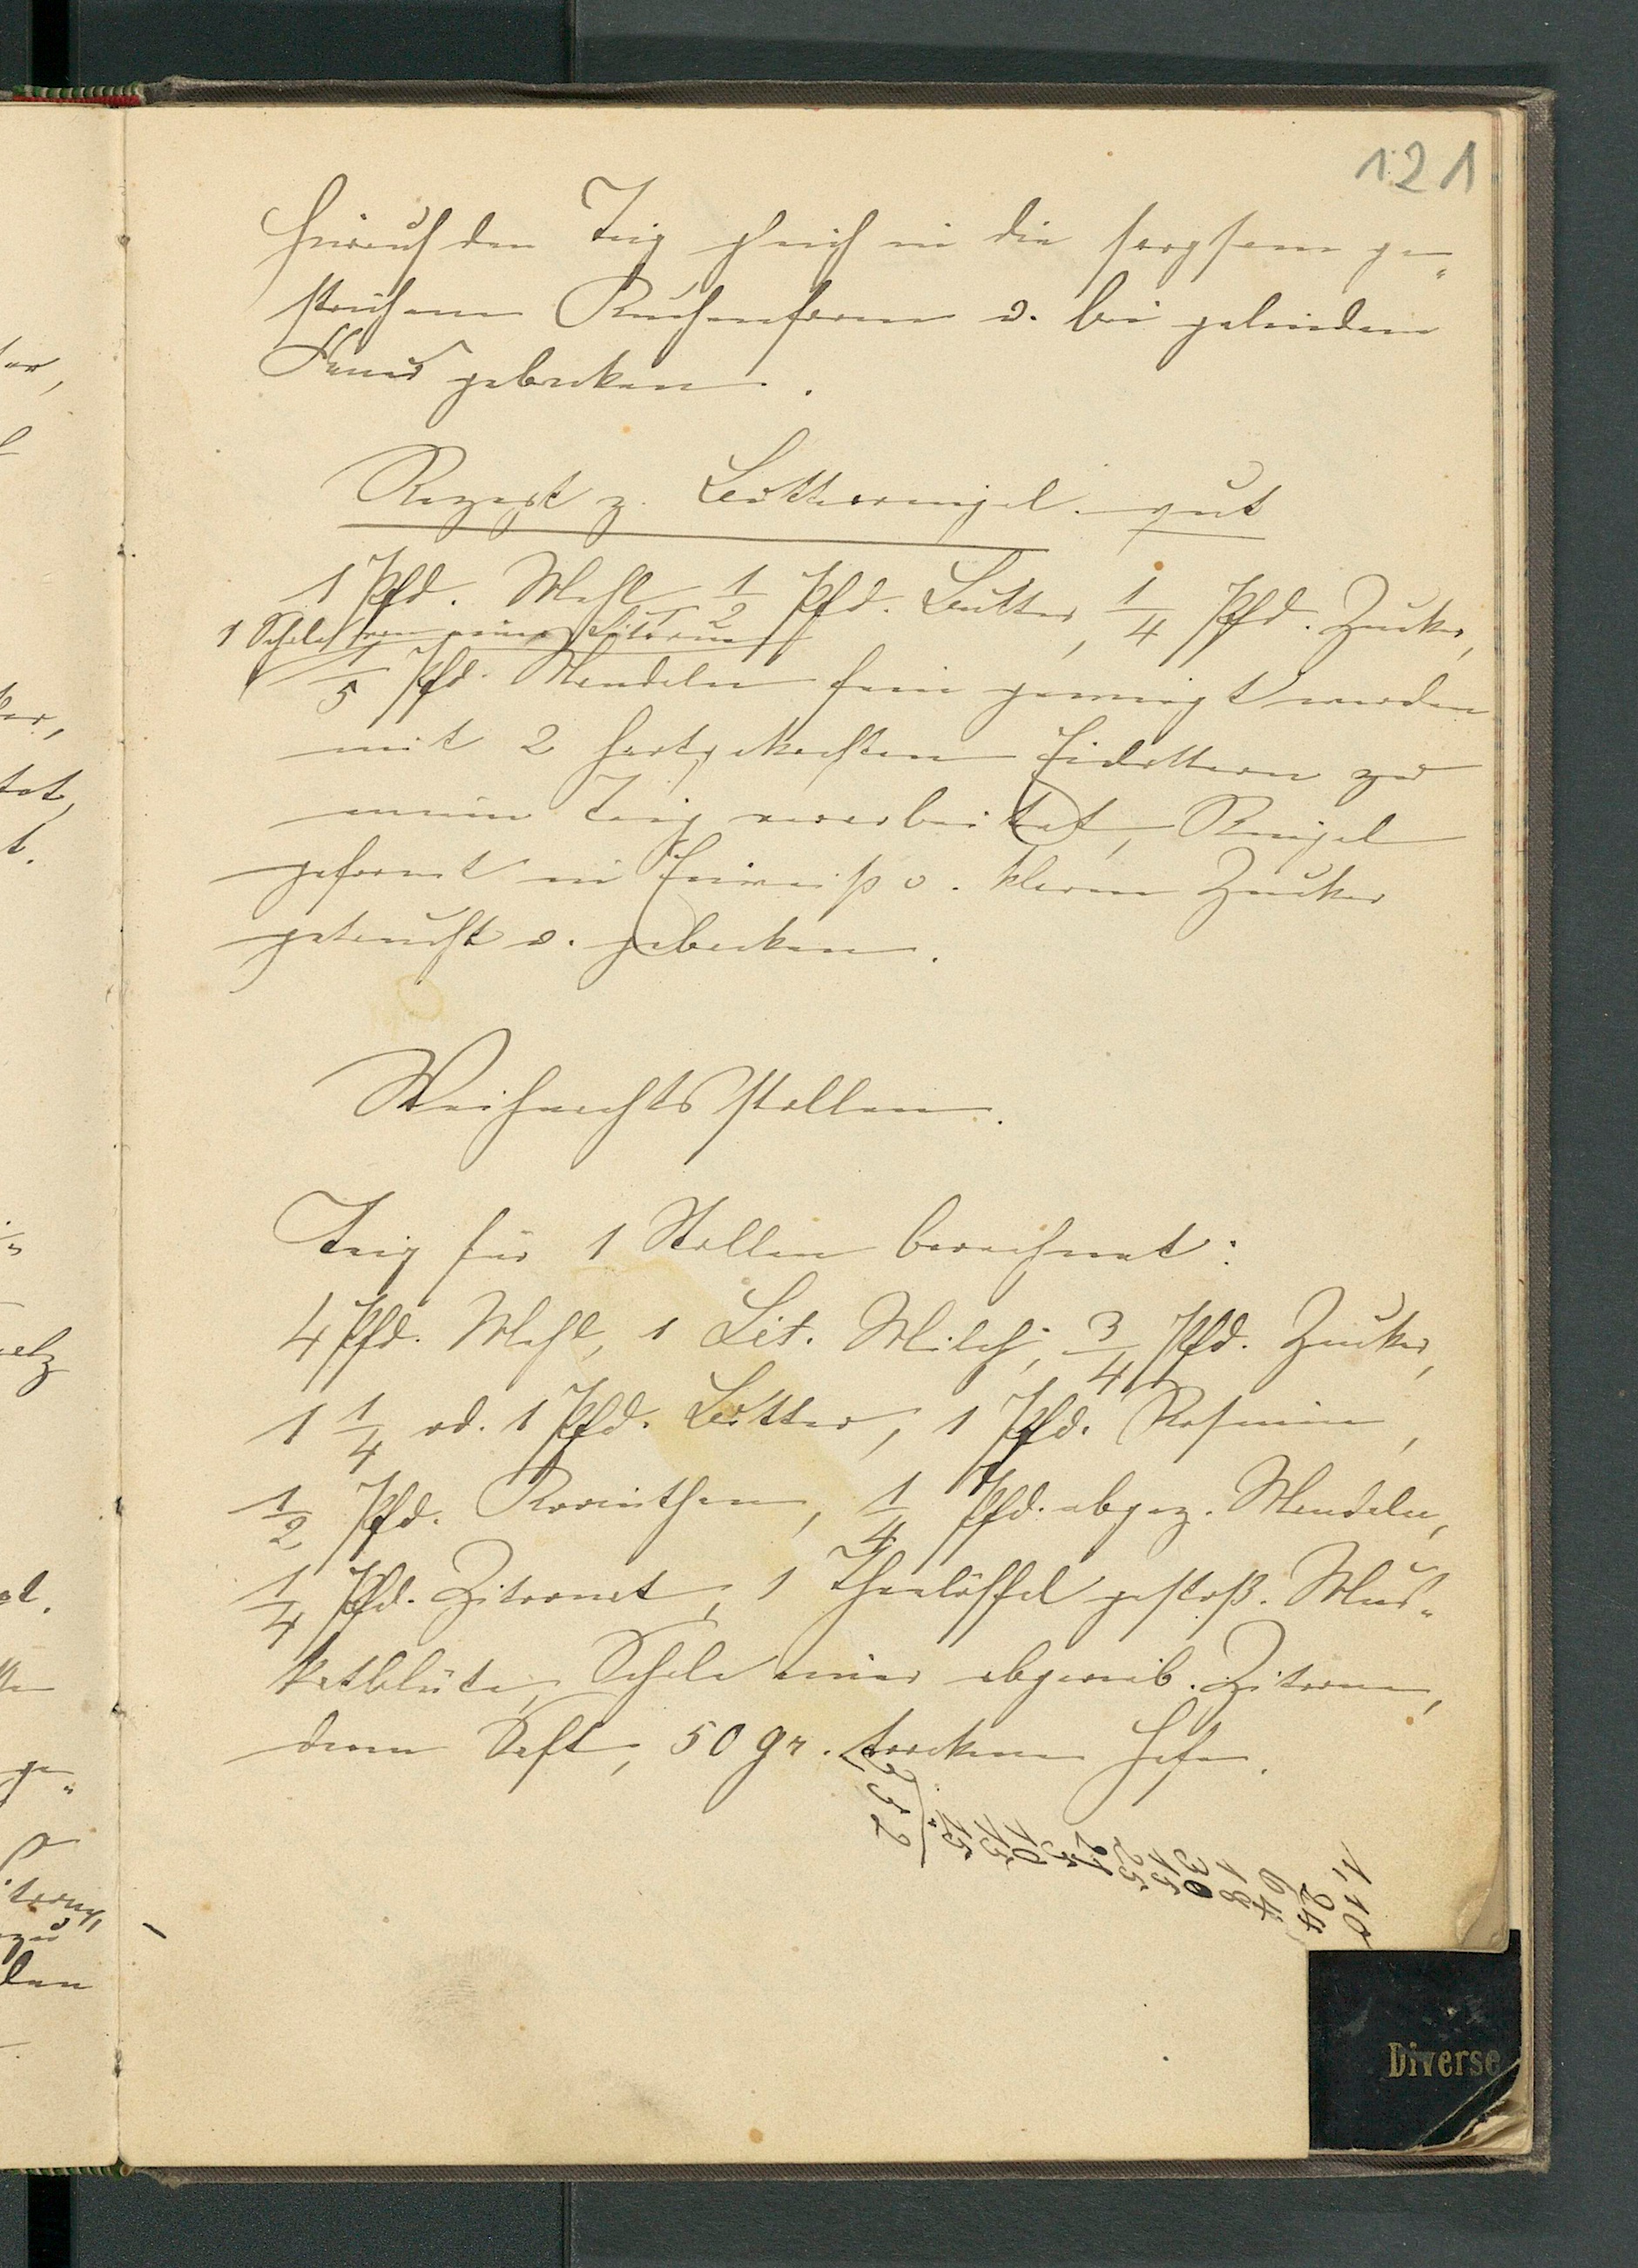 121
hierauf den Teig gleich in die sorgsam ge-
strichene Kuchenform u. bei gelindem
Feuer gebacken.
Rezept z. Butterringel. gut
1 Pfd. Mehl 1/2 Pfd. Butter, 1/4 Pfd. Zucker,
1 Schale von einer Zitrone
1/5 Pfd. Mandeln fein gewiegt werden
mit 2 hartgekochten Eidottern zu
einem Teig verarbeitet, Ringel
geformt in Eiweiß u. klaren Zucker
getaucht u. gebacken.
Weihnachtsstollen.
Teig für 1 Stollen berechnet:
4 Pfd. Mehl, 1 Lit. Milch, 3/4 Pfd. Zucker,
1 1/4 od. 1 Pfd. Butter, 1 Pfd. Rosinen,
1/2 Pfd. Korinthen, 1/4 Pfd. abgez. Mandeln,
1/4 Pfd. Zitronat, 1 Theelöffel gestoß. Mus-
katblüte, Schale einer abgerieb. Zitrone,
deren Saft, 50 gr. trockene Hefe.
Diverse